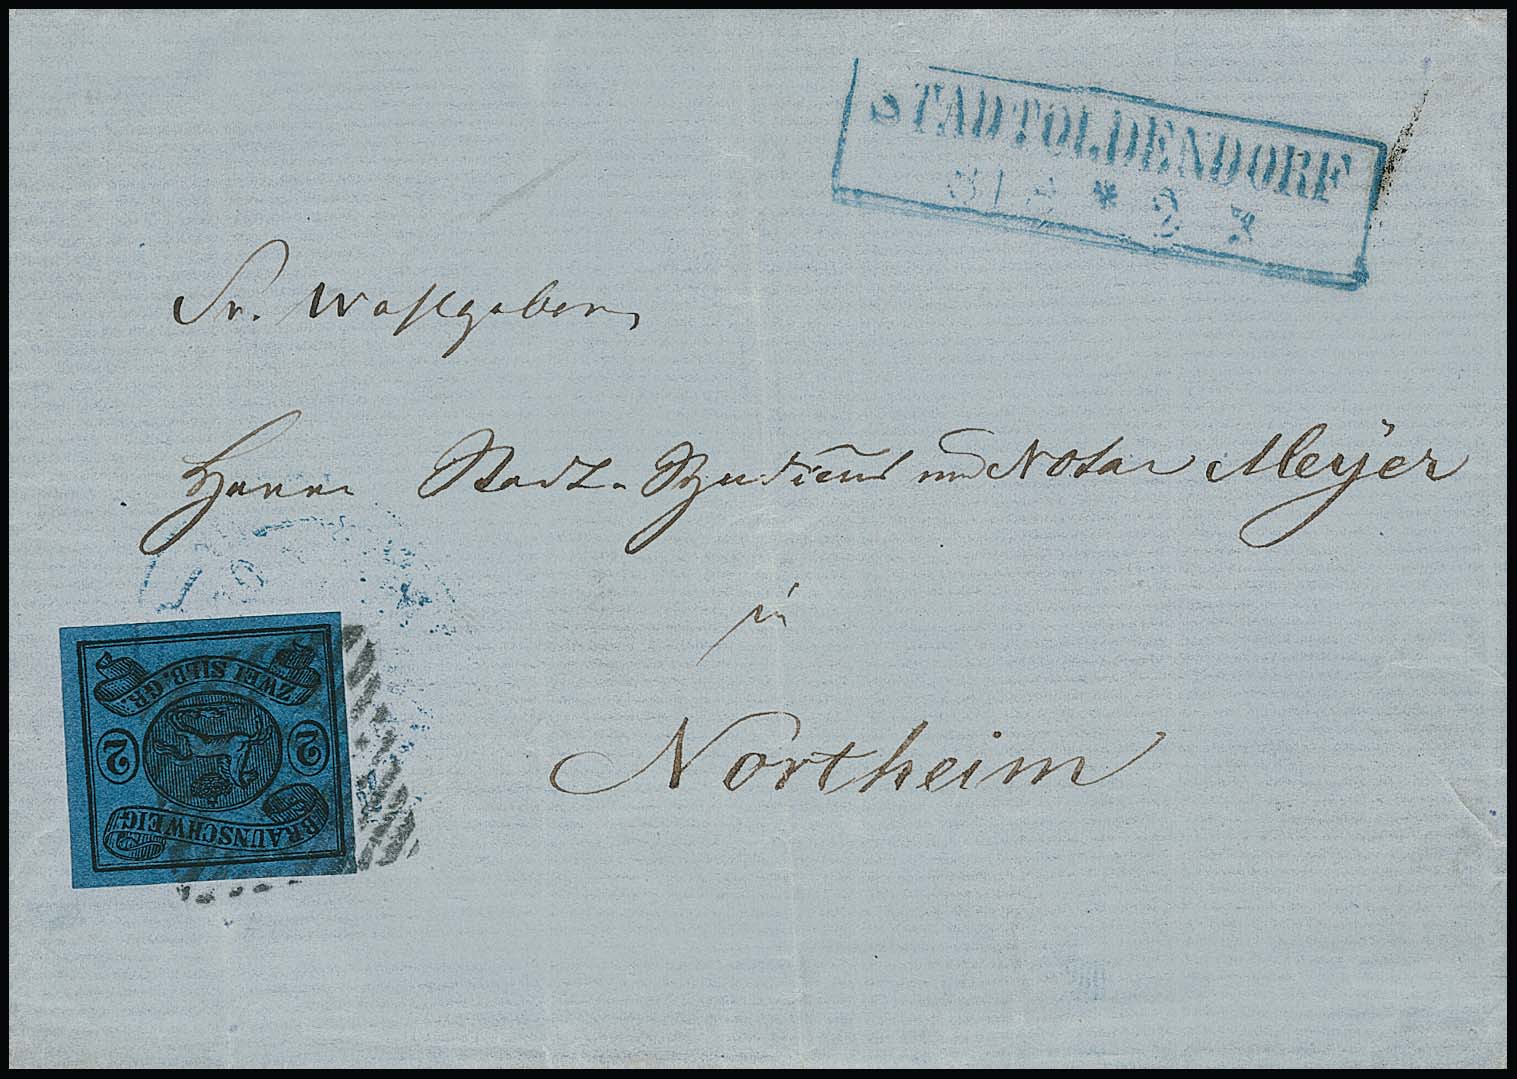 STADTOLDENDORF
Sr. Wohlgeboren
Herrn Stadt-Syndicus und Notar Meyer
in
Northeim
ZWEI SILB. GR.
2 2
BRAUNSCHWEIG